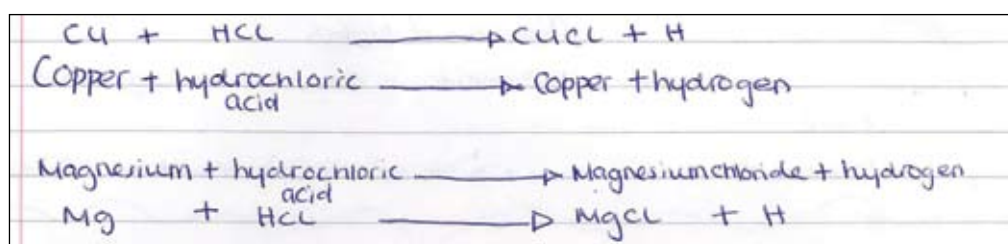 Cu + HCL → CUCL + H
Copper + hydrochloric acid → Copper + hydrogen
Magnesium + hydrochloric acid → Magnesium chloride + hydrogen
Mg + HCL → MgCL + H